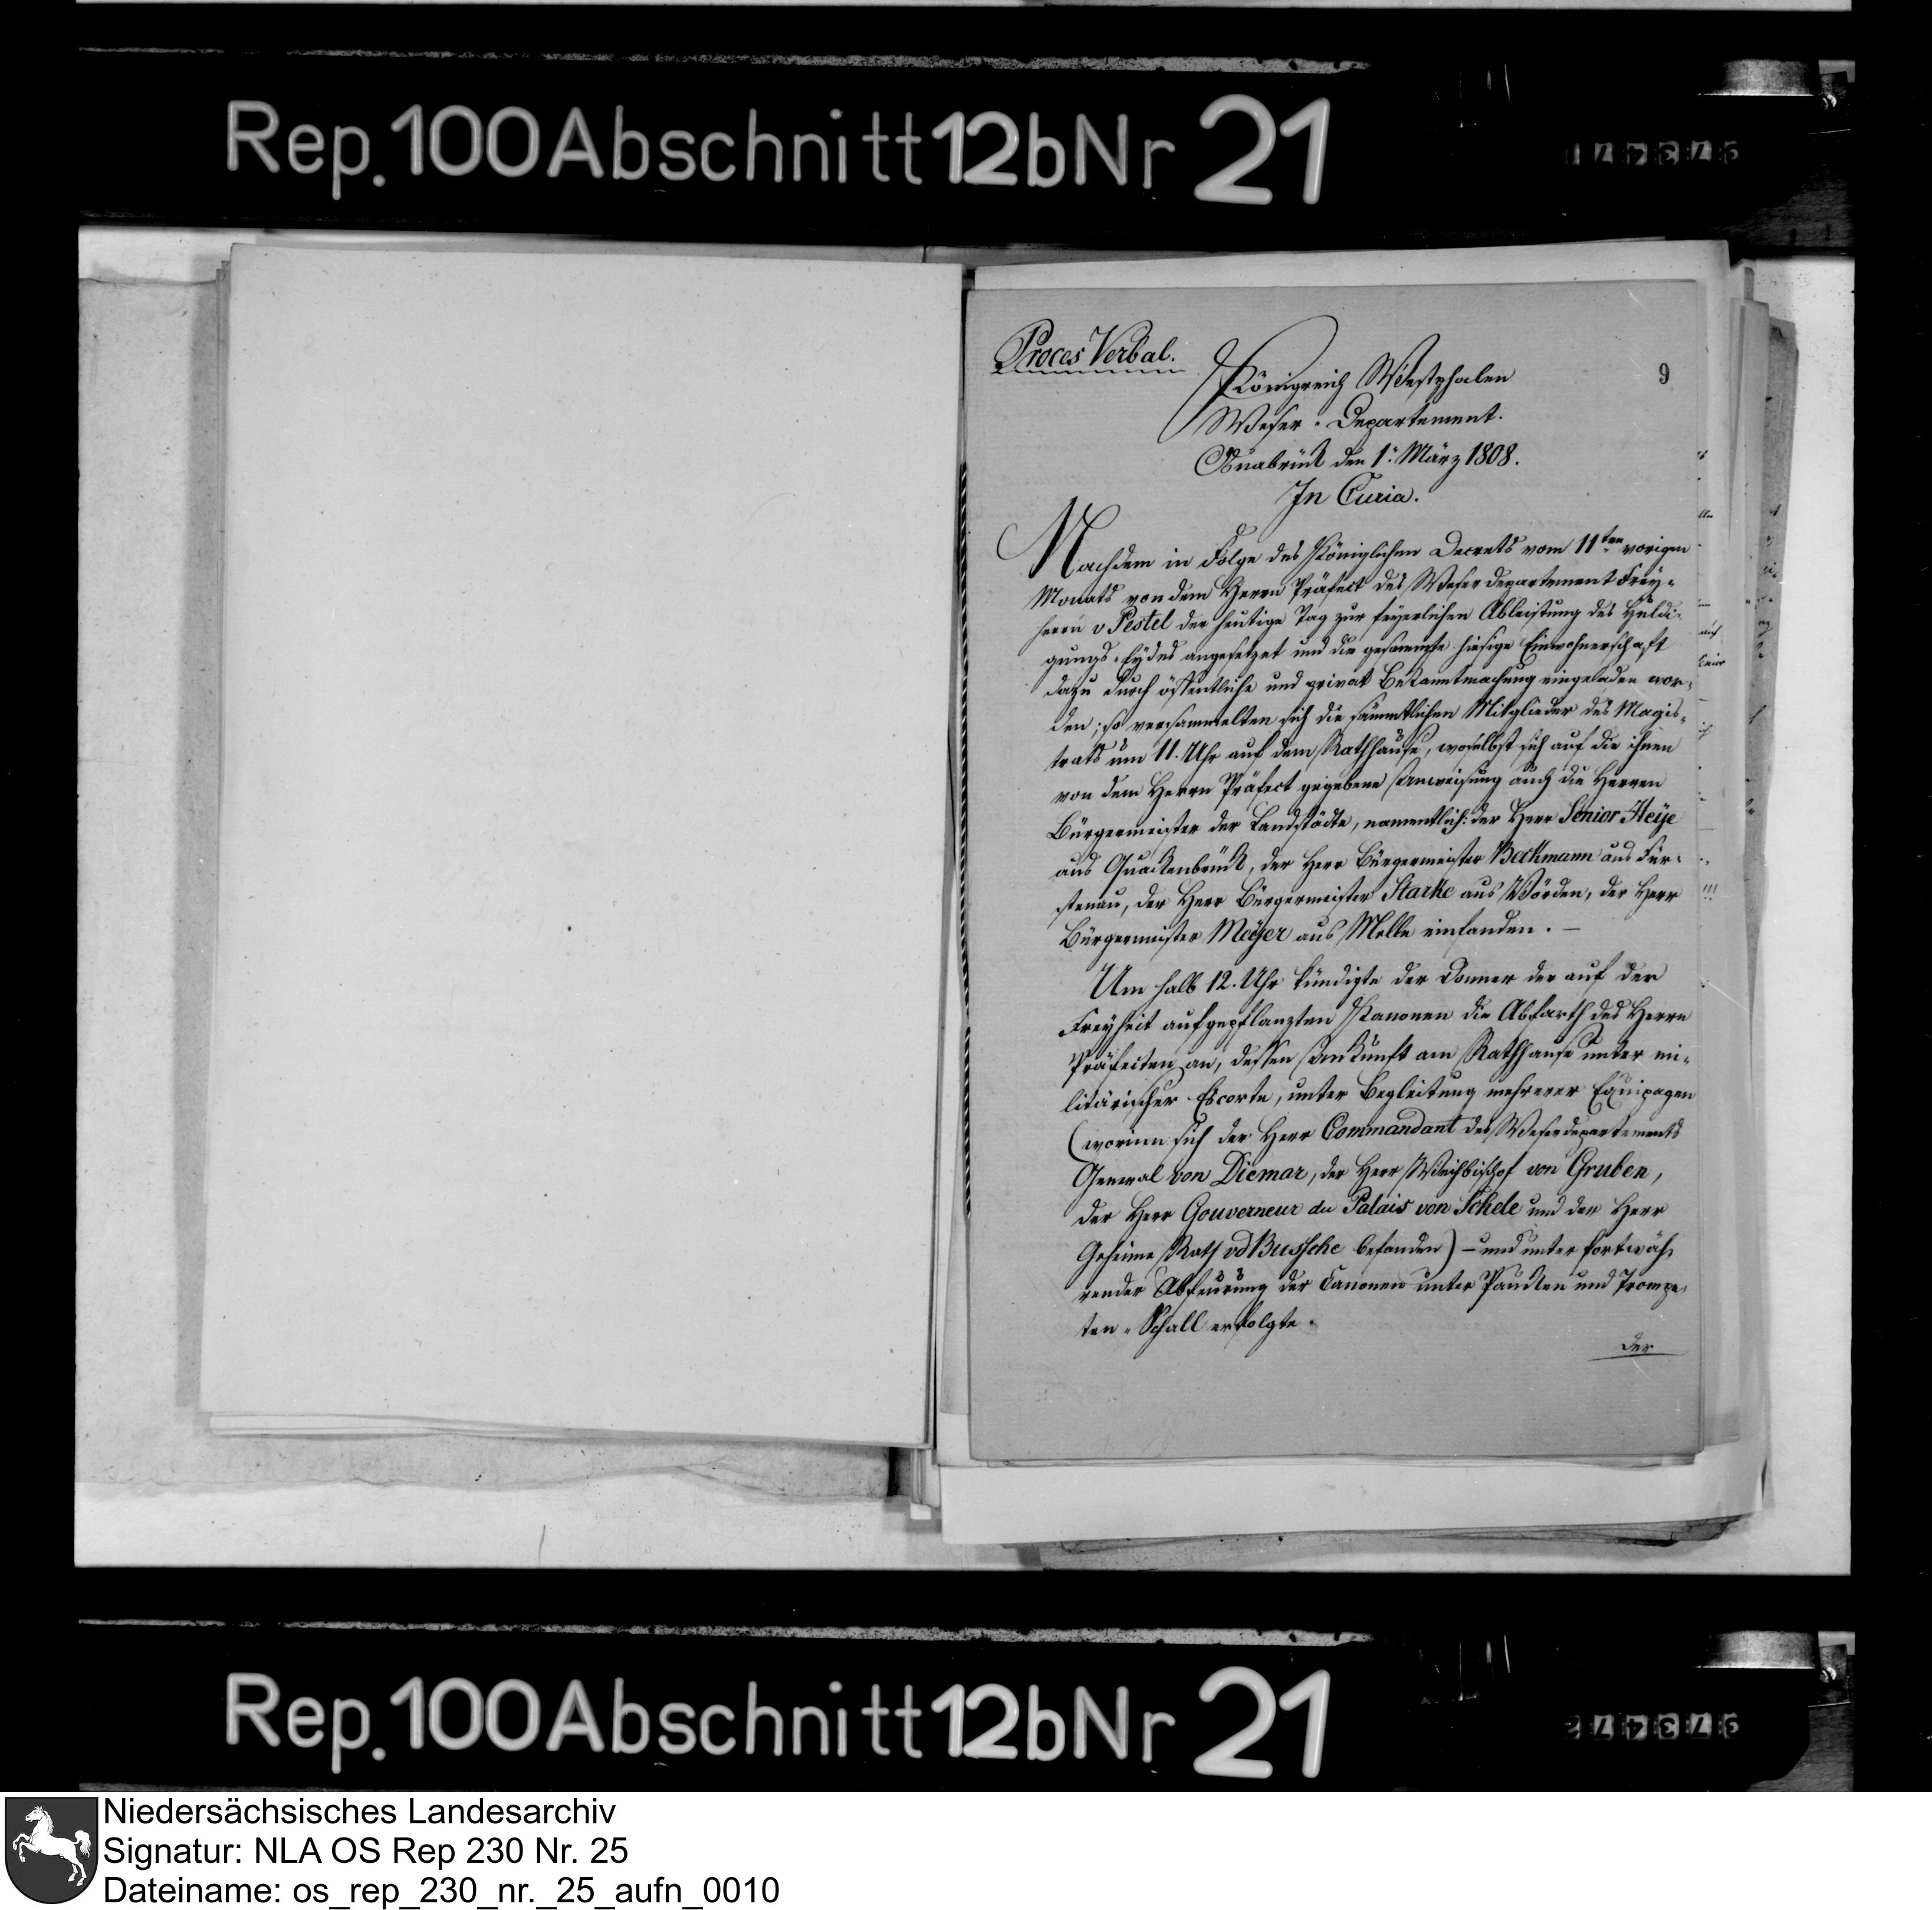 Rep. 100 Abschnitt 12b Nr 21
Proces Verbal.
9
Königreich Westphalen
Weser-Departement.
Osnabrück den 1. März 1808.
In Curia.
Nachdem in Folge des Königlichen Decrets vom 11ten vorigen
Monats von dem Herrn Präfect des Weserdepartement Frey-
herrn v Pestel der heutige Tag zur feyerlichen Ableistung des Huldi-
gungs-Eydes angesetzet und die gesammte hiesige Einwohnerschaft
dazu durch öffentliche und privat Bekanntmachung eingeladen wor-
den; so versammelten sich die sämmtlichen Mitglieder des Magis-
trats um 11. Uhr auf dem Rathhause, woselbst sich auf die ihnen
von dem Herrn Präfect gegebene Anweisung auch die Herren
Bürgermeister der Landstädte, namentlich: der Herr Senior Heye
aus Quackenbrück, der Herr Bürgermeister Beckmann aus Für-
stenau, der Herr Bürgermeister Starke aus Vörden, der Herr
Bürgermeister Meÿer aus Melle einfanden. –
Um halb 12. Uhr kündigte der Donner der auf der
Freyheit aufgepflanzten Kanonen die Abfarth des Herrn
Präfecten an, dessen Ankunft am Rathhause unter mi-
litärischer Escorte, unter Begleitung mehrerer Equipagen
(worinn sich der Herr Commandant des Weserdepartements
General von Diemar, der Herr Weihbischof von Gruben,
der Herr Gouverneur du Palais von Schele und der Herr
Geheime Rath vdBussche befanden) – und unter fortwäh-
render Abfeurung der Canonen unter Paucken und Trompe-
ten-Schall erfolgte.
der
Rep. 100 Abschnitt 12b Nr 21
Niedersächsisches Landesarchiv
Signatur: NLA OS Rep 230 Nr. 25
Dateiname: os_rep_230_nr._25_aufn_0010